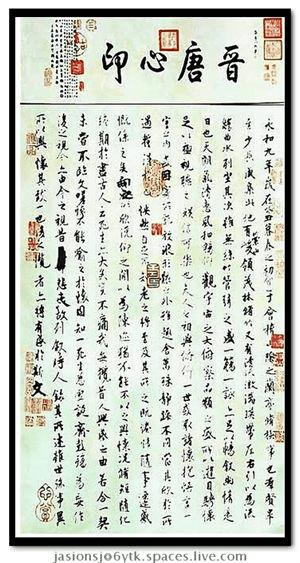 晉唐心印
永和九年歲在癸丑暮春之初會于會稽山陰之蘭亭脩稧事也群賢畢
至少長咸集此地有崇山峻領茂林脩竹又有清流激湍暎帶左右引以為流
觴曲水列坐其次雖無絲竹管弦之盛一觴一詠亦足以暢敘幽情是
日也天朗氣清惠風和暢仰觀宇宙之大俯察品類之盛所以遊目騁懷
足以極視聽之娛信可樂也夫人之相與俯仰一世或取諸懷抱悟言一
室之內或因寄所託放浪形骸之外雖趣舍萬殊靜躁不同當其欣於所
遇快然自足不知老之將至及其所之既惓情隨事遷感
慨係之矣向之所欣俛仰之閒以為陳迹猶不能不以之興懷況脩短隨化
終期於盡古人云死生亦大矣豈不痛哉每攬昔人興感之由若合一契
未嘗不臨文嗟悼不能喻之於懷固知一死生為虛誕齊彭殤為妄作
後之視今亦由今之視昔悲夫故列敘時人錄其所述雖世殊事異
所以興懷其致一也後之攬者亦將有感於斯文
jasionsj@6ytk.spaces.live.com